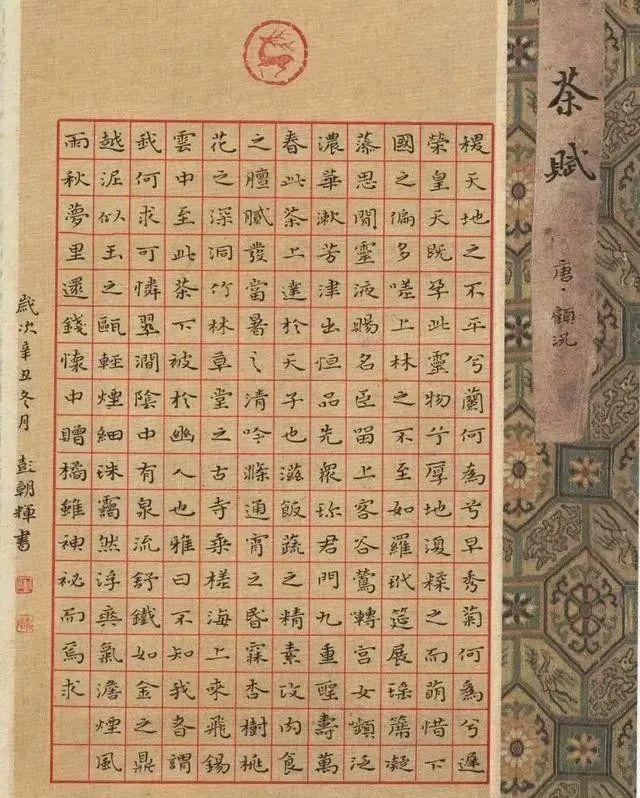 茶賦
唐·顧況
稷天地之不平兮蘭何為兮早秀菊何為兮遲
榮皇天既孕此靈物兮厚地復糅之而萌惜下
國之偏多嗟上林之不至如羅玳筵展瑤凝
藻思閒靈液賜名臣留上客谷鶯轉宮女嚬泛
濃華漱芳津出恒品先眾珍君門九重聖壽萬
春此茶上達於天子也滋飯蔬之精素攻肉食
之膻膩發當暑之清吟滌通宵之昏寐杏樹桃
花之深洞竹林草堂之古寺乘槎海上來飛錫
雲中至此茶下被於幽人也雅曰不知我者謂
我何求可憐翠澗陰中有泉流舒鐵如金之鼎
越泥似玉之甌輕煙細珠靄然浮爽氣澹煙風
雨秋夢里還錢懷中贈橘雖神祕而焉求
歲次辛丑冬月 彭朝輝書